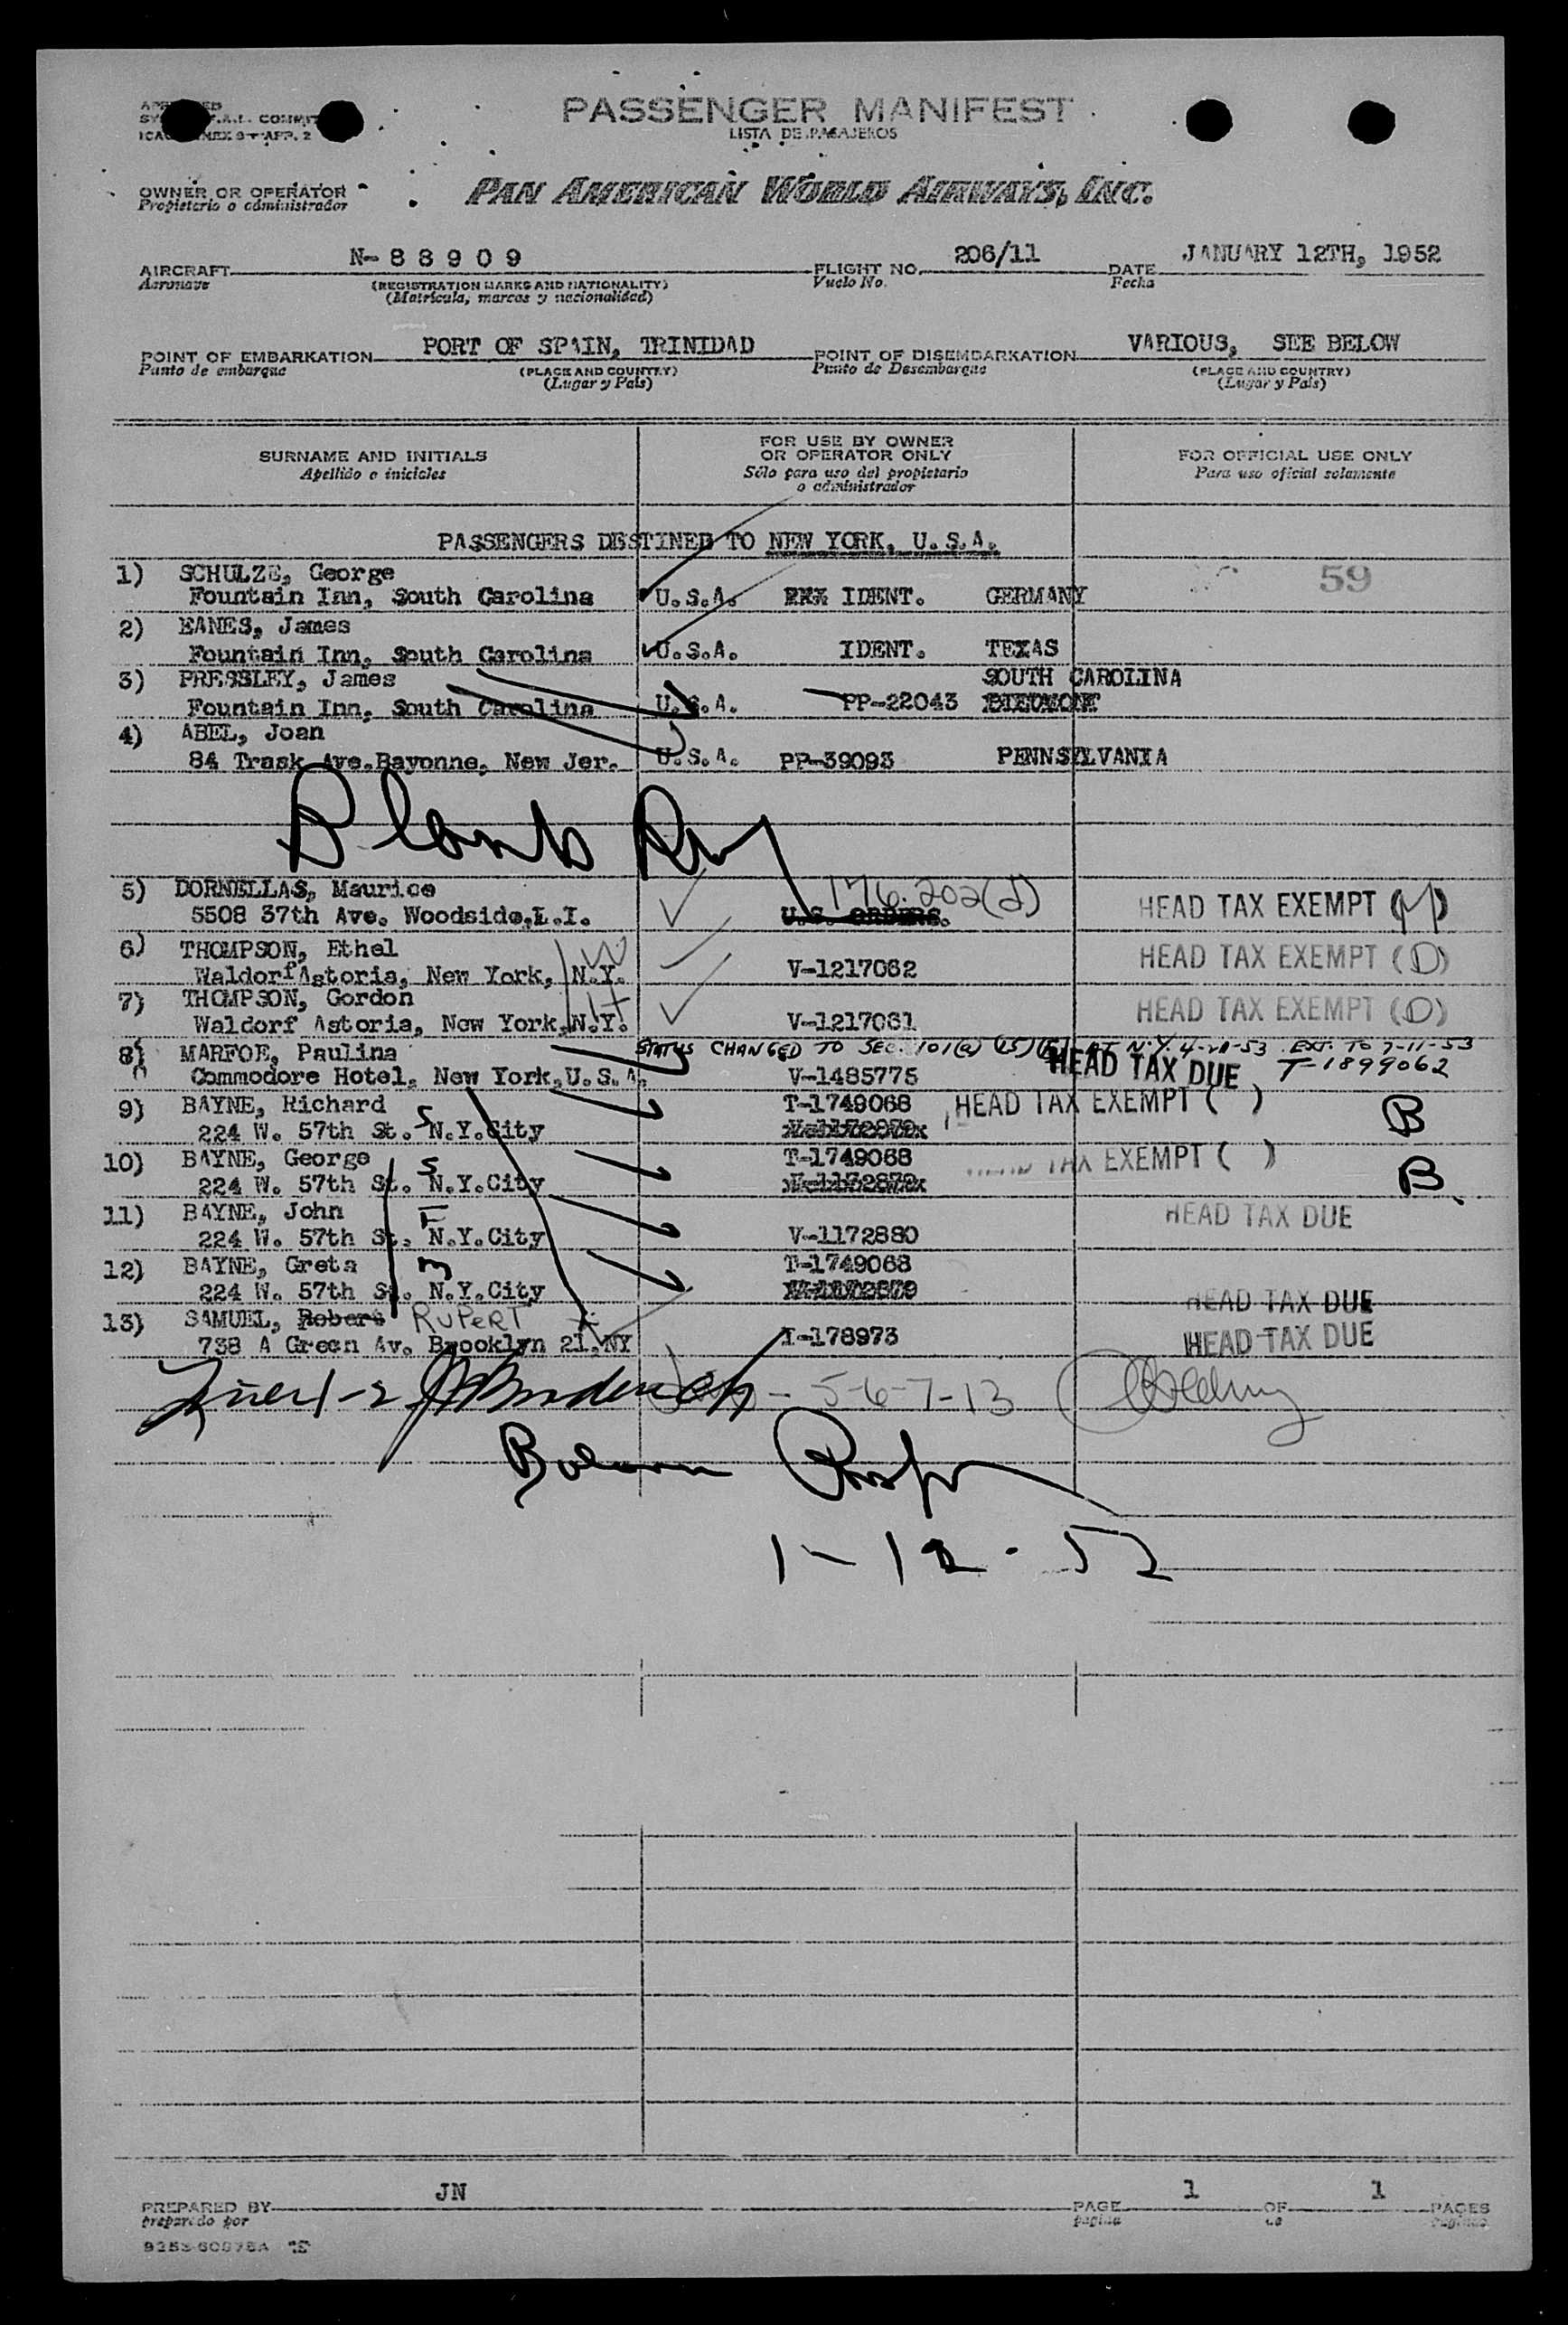 PASSENGER MANIFEST
LISTA DE PASAJEROS
OWNER OR OPERATOR
Propietario o administrador
PAN AMERICAN WORLD AIRWAYS, INC.
AIRCRAFT N-88909 FLIGHT NO. 206/11 DATE JANUARY 12TH, 1952
Aeronave (REGISTRATION MARKS AND NATIONALITY) Vuelo No. Fecha
(Matrícula, marcas y nacionalidad)
POINT OF EMBARKATION PORT OF SPAIN, TRINIDAD POINT OF DISEMBARKATION VARIOUS, SEE BELOW
Punto de embarque (PLACE AND COUNTRY) Punto de Desembarque (PLACE AND COUNTRY)
(Lugar y País) (Lugar y País)
SURNAME AND INITIALS FOR USE BY OWNER OR OPERATOR ONLY FOR OFFICIAL USE ONLY
Apellido e iniciales Sólo para uso del propietario o administrador Para uso oficial solamente
PASSENGERS DESTINED TO NEW YORK, U.S.A.
1) SCHULZE, George 59
Fountain Inn, South Carolina U.S.A. IDENT. GERMANY
2) EANES, James
Fountain Inn, South Carolina U.S.A. IDENT. TEXAS
3) PRESSLEY, James SOUTH CAROLINA
Fountain Inn, South Carolina U.S.A. PP-22043
4) ABEL, Joan
84 Trask Ave.Bayonne, New Jer. U.S.A. PP-39093 PENNSYLVANIA
5) DORNELLAS, Maurice 176.202(d) HEAD TAX EXEMPT
5508 37th Ave. Woodside,L.I. U.S. ORDERS.
6) THOMPSON, Ethel HEAD TAX EXEMPT (D)
Waldorf Astoria, New York, N.Y. V-1217062
7) THOMPSON, Gordon HEAD TAX EXEMPT (D)
Waldorf Astoria, New York,N.Y. V-1217061
8) MARFOE, Paulina STATUS CHANGED TO SEC. 101(a) (15) AT N.Y. EXT. TO 7-11-53
Commodore Hotel, New York,U.S.A. V-1485775 HEAD TAX DUE T-1899062
9) BAYNE, Richard S T-1749068 HEAD TAX EXEMPT ( ) B
224 W. 57th St. N.Y.City
10) BAYNE, George S T-1749068 TAX EXEMPT ( ) B
224 W. 57th St. N.Y.City
11) BAYNE, John F HEAD TAX DUE
224 W. 57th St. N.Y.City V-1172880
12) BAYNE, Greta m T-1749068
224 W. 57th St. N.Y.City HEAD TAX DUE
13) SAMUEL, Robert RUPERT
738 A Green Av. Brooklyn 21,NY I-178973 HEAD TAX DUE
5-6-7-13
1-12-52
PREPARED BY JN PAGE 1 OF 1 PAGES
preparado por página de páginas